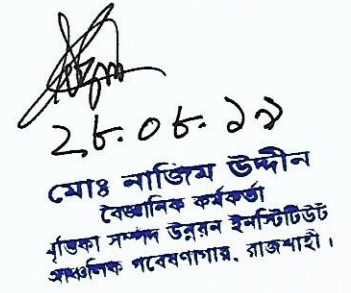 ২৮.০৮.১৯
মোঃ নাজিম উদ্দীন
বৈজ্ঞানিক কর্মকর্তা
মৃত্তিকা সম্পদ উন্নয়ন ইনস্টিটিউট
আঞ্চলিক গবেষণাগার, রাজশাহী।